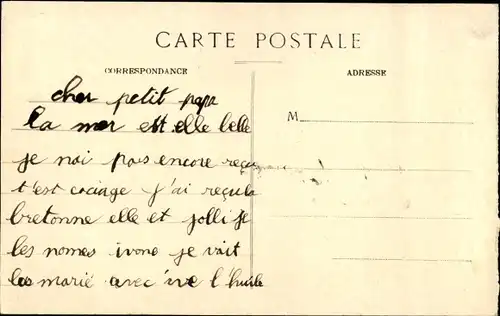 CARTE POSTALE
CORRESPONDANCE
ADRESSE
M
cher petit papa
la mer est elle belle
je nai pas encore reçu
t'est caciage j'ai reçu la
bretonne elle et jolli je
les nomes ivone je vait
les marié avec ive l'huile